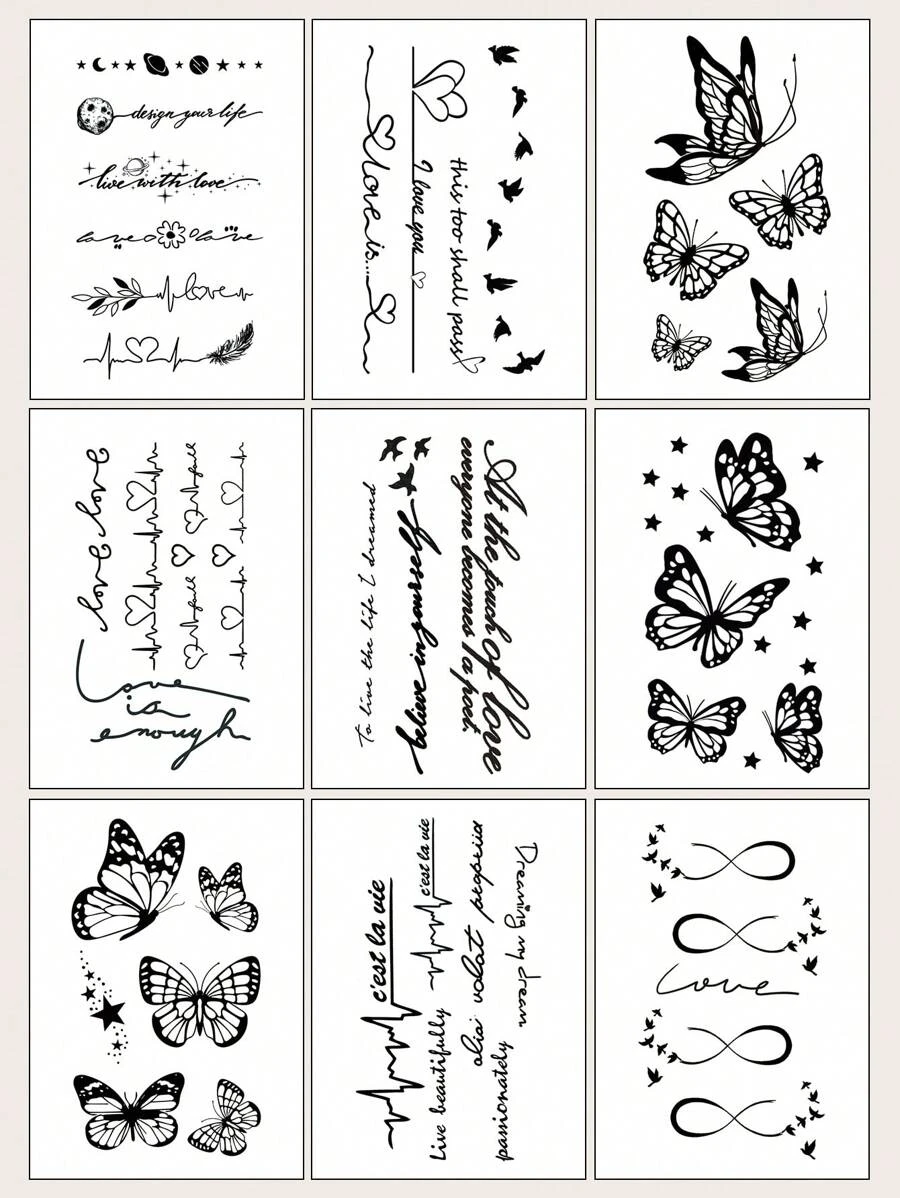 design your life
live with love
love love
love
this too shall pass
I love you
love is...
love love
Love
is
enough
At the touch of love
everyone becomes a poet.
believe in yourself
To live the life I dreamed
c'est la vie
c'est la vie
Live beautifully
alia volat propriia
passionately
Dreaming my dream
Love